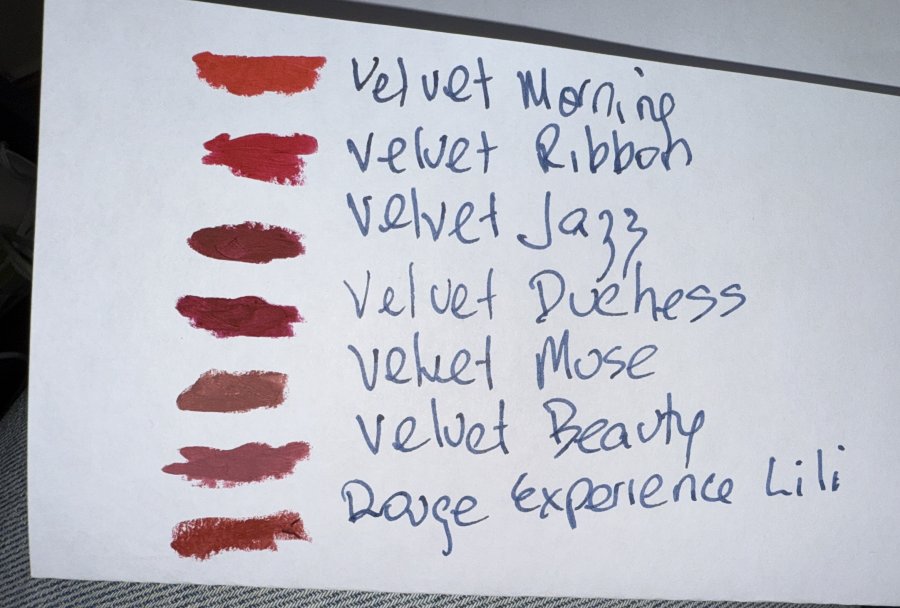 Velvet Morning
Velvet Ribbon
Velvet Jazz
Velvet Duchess
Velvet Muse
Velvet Beauty
Rouge Experience Lili